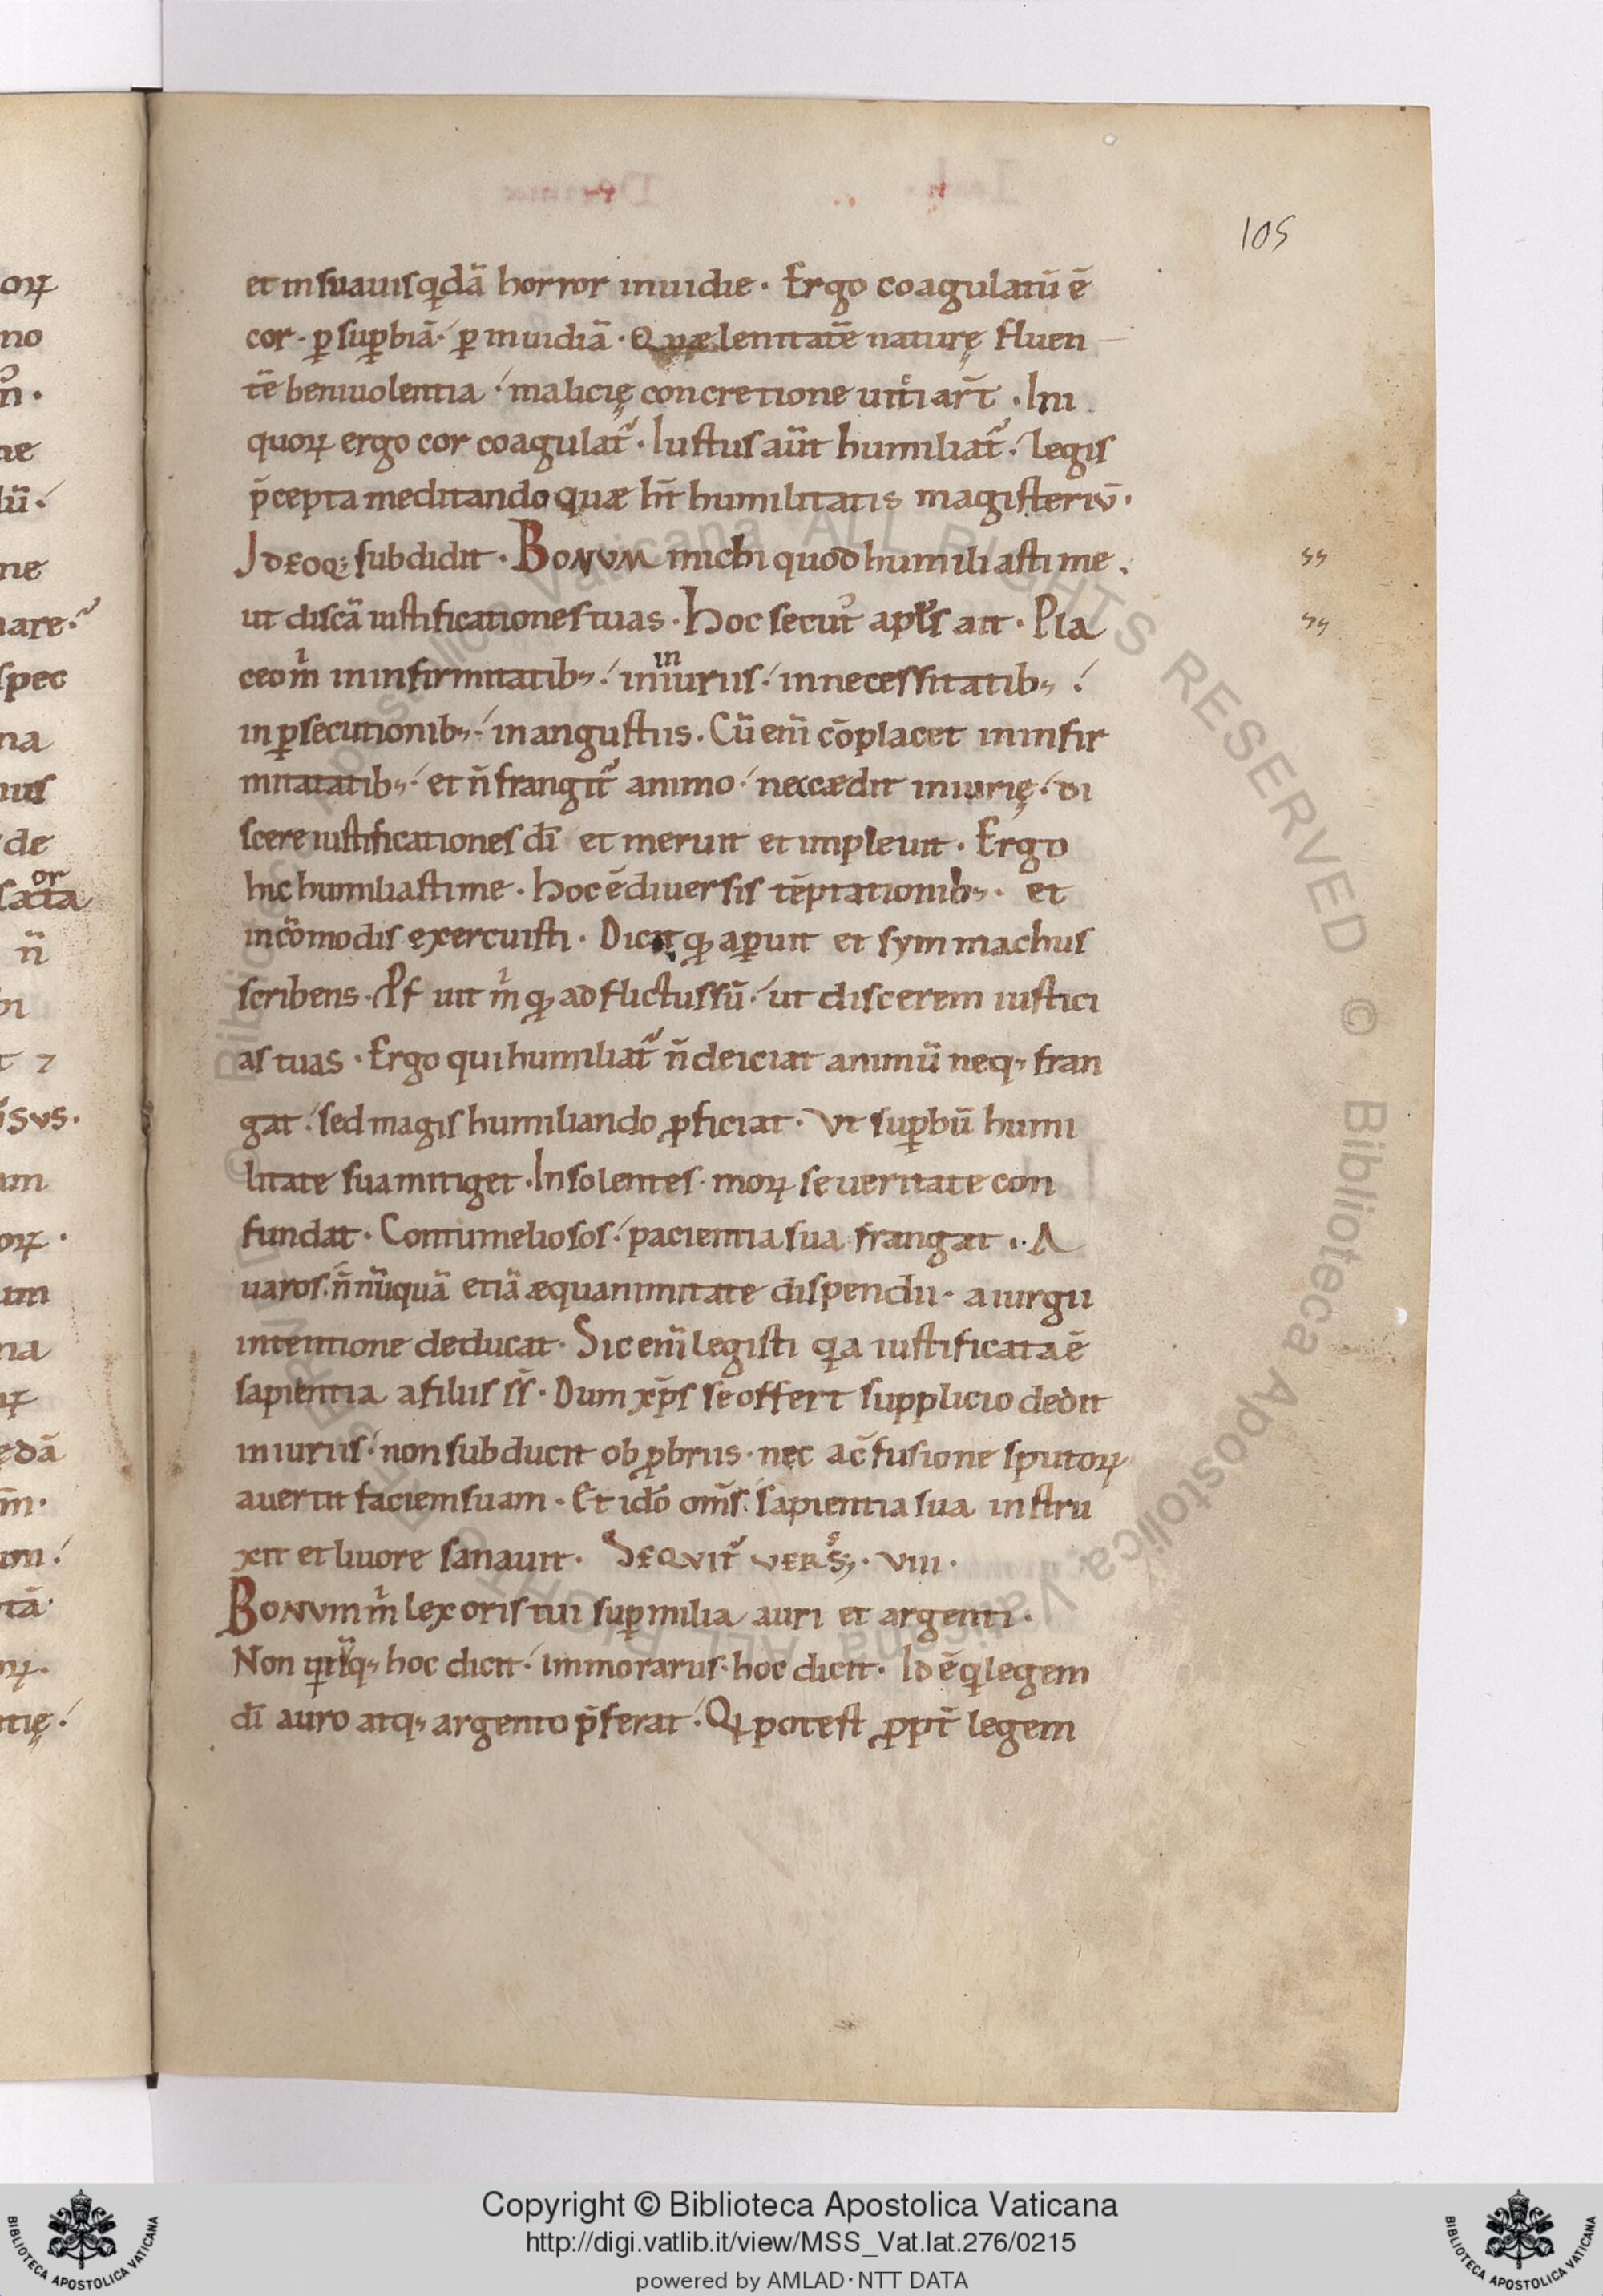 105
et insuauis qdā horror inuidie · Ergo coagulatū ē
cor · ꝑ suꝑbiā · ꝑ inuidiā · Quæ lenitatē naturę fluen
tē beniuolentia · malicię concretione uitiart̄ · Ini
quoꝝ ergo cor coagulat᷑ · Iustus aūt humiliat᷑ · legis
p̄cepta meditando quæ hn̄t humilitatis magisteriū ·
Ideoq; subdidit · Bonum michi quod humiliasti me ·
ut discā iustificationes tuas · Hoc secut᾽ apl̄s ait · Pla
ceo m̄ in infirmitatib; · in iniuriis · in necessitatib; ·
in ꝑsecutionib; · in angustiis · Cū eni̅ cōplacet in infir
mitatatib; · et n̄ frangit᷑ animo · nec cædit iniurię · di
scere iustificationes dī et meruit et impleuit · Ergo
hic humiliasti me · hoc ē diuersis tēptationib; · et
incōmodis exercuisti · Dicit qꝫ aꝑuit et symmachus
scribens · Pfuit m̄ qꝫ adflictus sū · ut discerem iustici
as tuas · Ergo qui humiliat᷑ n̄ deiciat animū neq; fran
gat · sed magis humiliando ꝓficiat · Ut suꝑbū humi
litate sua mitiget · Insolentes · moꝝ seueritate con
fundat · Contumeliosos · pacientia sua frangat · A
uaros · n̄nūquā etiā æquanimitate dispendii · a iurgii
intentione deducat · Sic eni̅ legisti qa iustificata ē
sapientia a filiis s̄s · Dum xp̄s se offert supplicio dedit
iniuriis · non subducit obꝓbriis · nęc a c̄fusione sputoꝝ
auertit faciem suam · Et idō om̄s sapientia sua instru
xit et liuore sanauit · Sequit᷑ uers; · VIII ·
Bonum m̄ lex oris tui suꝑ milia auri et argenti ·
Non hoc dicit · immo rarus · hoc dicit · Id ē q legem
dī auro atq; argento p̄ferat · Q potest ꝓpt̄ legem
oꝝ
no
ne
ne
spec
na
de
or
n̄
um
oꝝ ·
na
ędā
um
tā
tię
Copyright © Biblioteca Apostolica Vaticana
http://digi.vatlib.it/view/MSS_Vat.lat.276/0215
powered by AMLAD·NTT DATA
BIBLIOTECA APOSTOLICA VATICANA
BIBLIOTECA APOSTOLICA VATICANA
© Biblioteca Apostolica Vaticana ALL RIGHTS RESERVED © Biblioteca Apostolica Vaticana ALL RIGHTS RESERVED